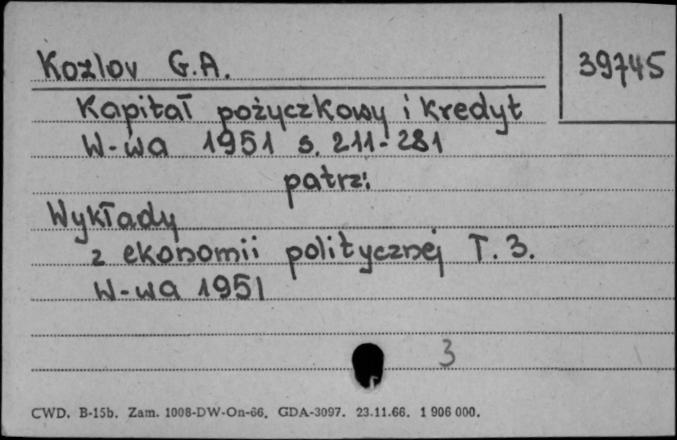 Kozlov G.A.
39745
Kapitał pożyczkowy i kredyt
W-wa 1951 s. 211-281
patrz:
Wykłady
z ekonomii politycznej T. 3.
W-wa 1951
3
CWD. B-15b. Zam. 1008-DW-On-66. GDA-3097. 23.11.66. 1 906 000.